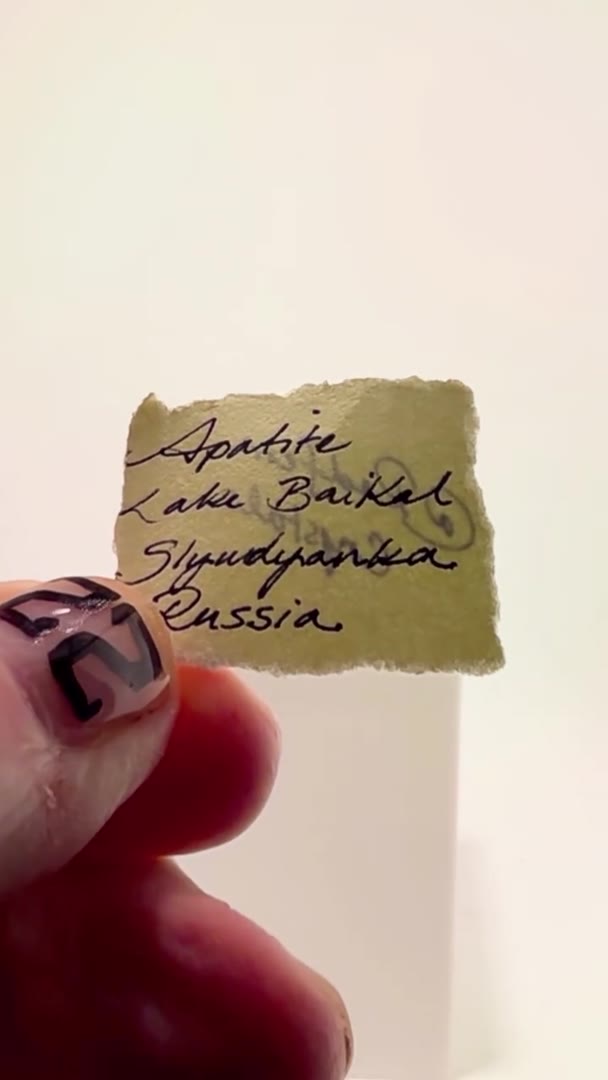 Apatite
Lake Baikal
Slyudyanka
Russia